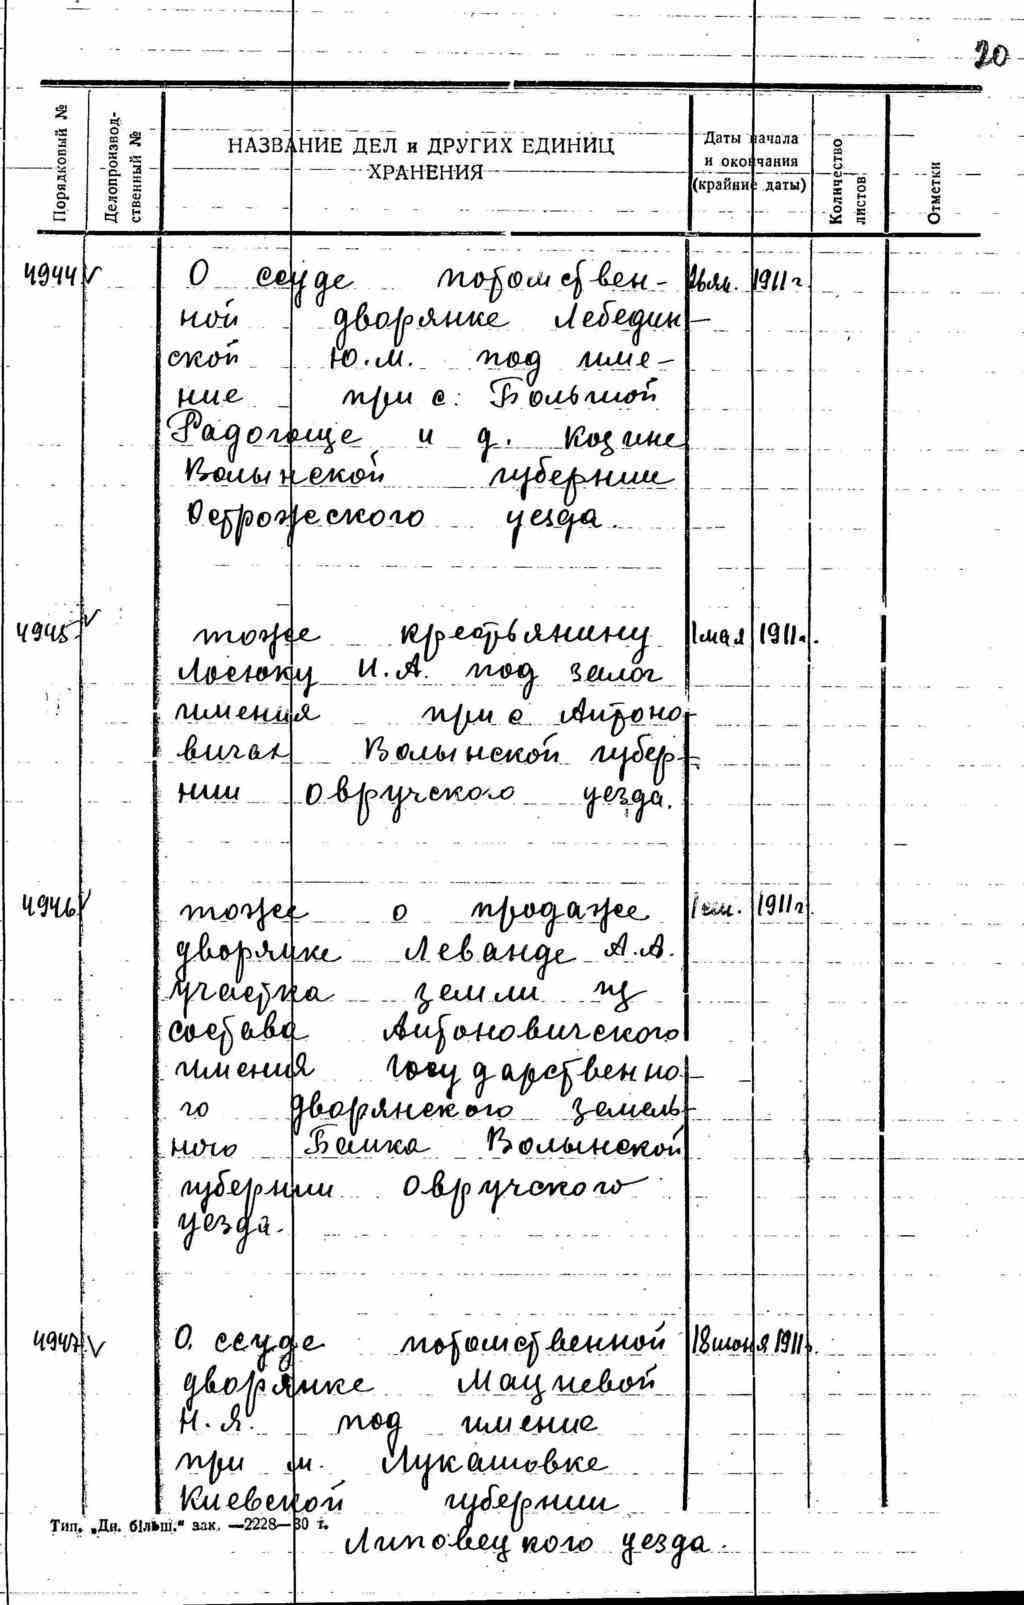 20
Порядковый №
Делопроизвод-
ственный №
НАЗВАНИЕ ДЕЛ и ДРУГИХ ЕДИНИЦ
ХРАНЕНИЯ
Даты начала
и окончания
(крайние даты)
Количество
листов
Отметки
4944 О ссуде потомствен- 1911 г.
ной дворянке Лебедин-
ской Ю.М. под име-
ние при с. Большой
Радогоще и д. Козине
Волынской губернии
Острожского уезда.
4945 тоже крестьянину 1 мая 1911 г.
Лосюку И.А. под залог
имения при с Антоно-
вичах Волынской губер-
нии Овручского уезда.
4946 тоже о продаже 1 сен. 1911 г.
дворянке Леванде А.А.
участка земли из
состава Антоновичского
имения Государственно-
го дворянского земель-
ного Банка Волынской
губернии Овручского
уезда.
4947 О ссуде потомственной 18 июня 1911 г.
дворянке Мацневой
Н.Я. под имение
при м. Лукашовке
Киевской губернии
Тип. „Дн. більш." зак. —2228—30 т.
Липовецкого уезда.